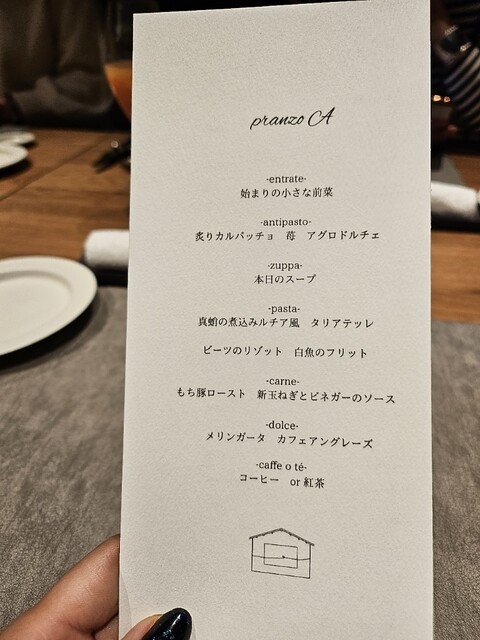 pranzo A
-entrate-
始まりの小さな前菜
-antipasto-
炙りカルパッチョ　苺　アグロドルチェ
-zuppa-
本日のスープ
-pasta-
真蛸の煮込みルチア風　タリアテッレ
ビーツのリゾット　白魚のフリット
-carne-
もち豚ロースト　新玉ねぎとビネガーのソース
-dolce-
メリンガータ　カフェアングレーズ
-caffe o té-
コーヒー　or 紅茶